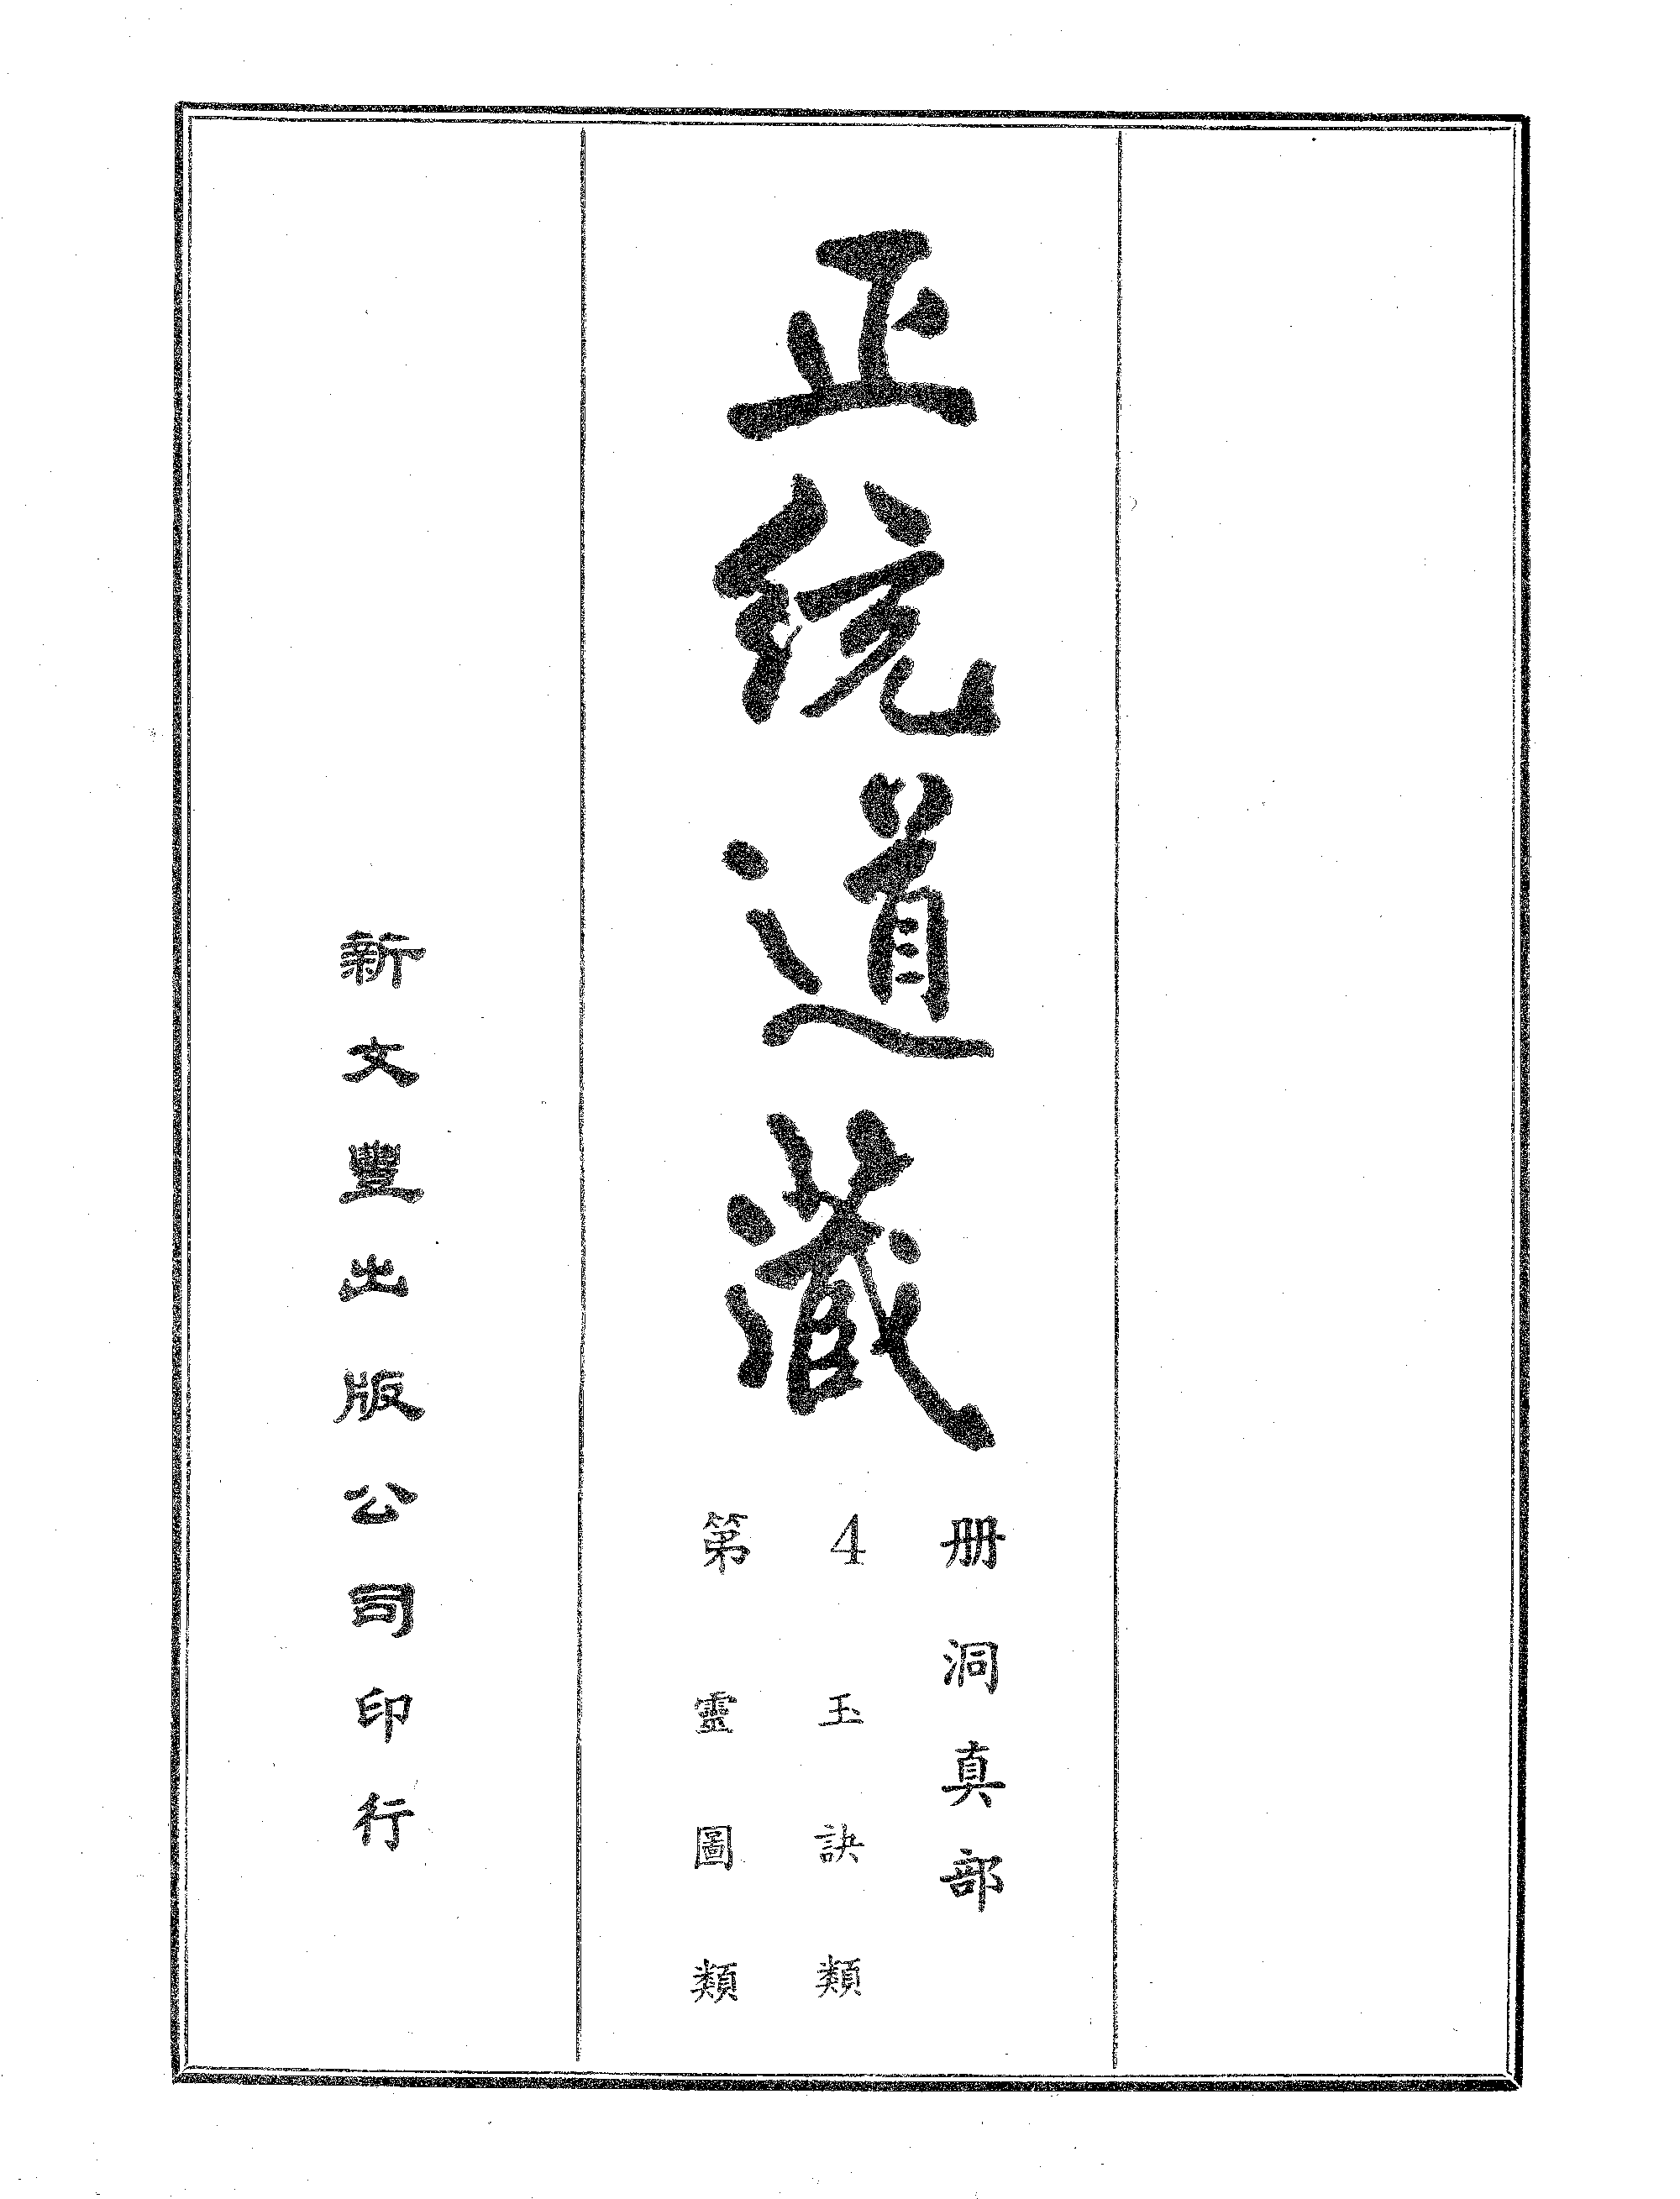 正統道藏
第4册
洞真部
玉訣類
靈圖類
新文豐出版公司印行